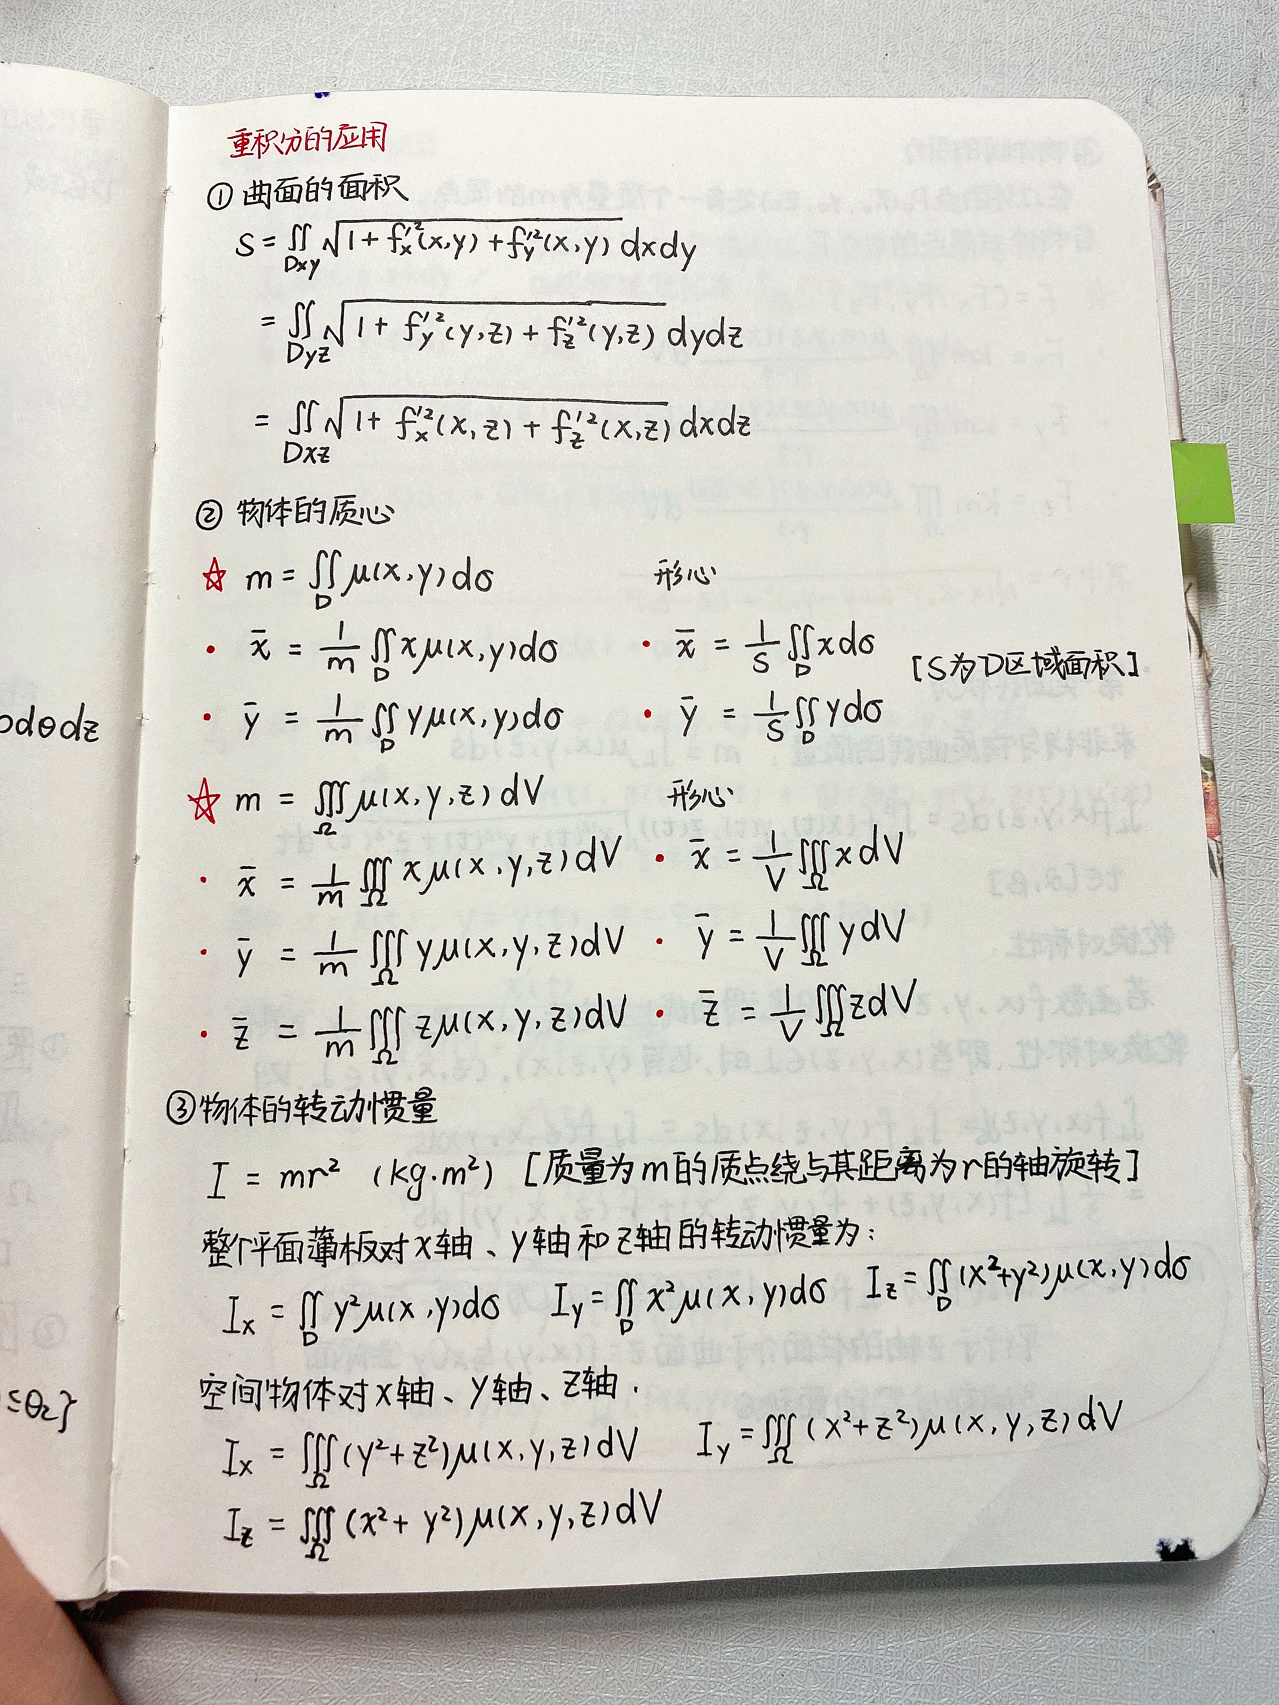 重积分的应用
① 曲面的面积
S = ∬_{Dxy} √(1 + f'ₓ²(x,y) + f'_y²(x,y)) dxdy
= ∬_{Dyz} √(1 + f'_y²(y,z) + f'_z²(y,z)) dydz
= ∬_{Dxz} √(1 + f'ₓ²(x,z) + f'_z²(x,z)) dxdz
② 物体的质心
☆ m = ∬_D μ(x,y)dσ 形心
· x̄ = 1/m ∬_D xμ(x,y)dσ · x̄ = 1/S ∬_D xdσ [S为D区域面积]
· ȳ = 1/m ∬_D yμ(x,y)dσ · ȳ = 1/S ∬_D ydσ
☆ m = ∭_Ω μ(x,y,z)dV 形心
· x̄ = 1/m ∭_Ω xμ(x,y,z)dV · x̄ = 1/V ∭_Ω xdV
· ȳ = 1/m ∭_Ω yμ(x,y,z)dV · ȳ = 1/V ∭_Ω ydV
· z̄ = 1/m ∭_Ω zμ(x,y,z)dV · z̄ = 1/V ∭_Ω zdV
③ 物体的转动惯量
I = mr² (kg·m²) [质量为m的质点绕与其距离为r的轴旋转]
整个平面薄板对x轴、y轴和z轴的转动惯量为:
Iₓ = ∬_D y²μ(x,y)dσ I_y = ∬_D x²μ(x,y)dσ I_z = ∬_D (x²+y²)μ(x,y)dσ
空间物体对x轴、y轴、z轴.
Iₓ = ∭_Ω (y²+z²)μ(x,y,z)dV I_y = ∭_Ω (x²+z²)μ(x,y,z)dV
I_z = ∭_Ω (x²+y²)μ(x,y,z)dV
dθdz
≤θ₂}